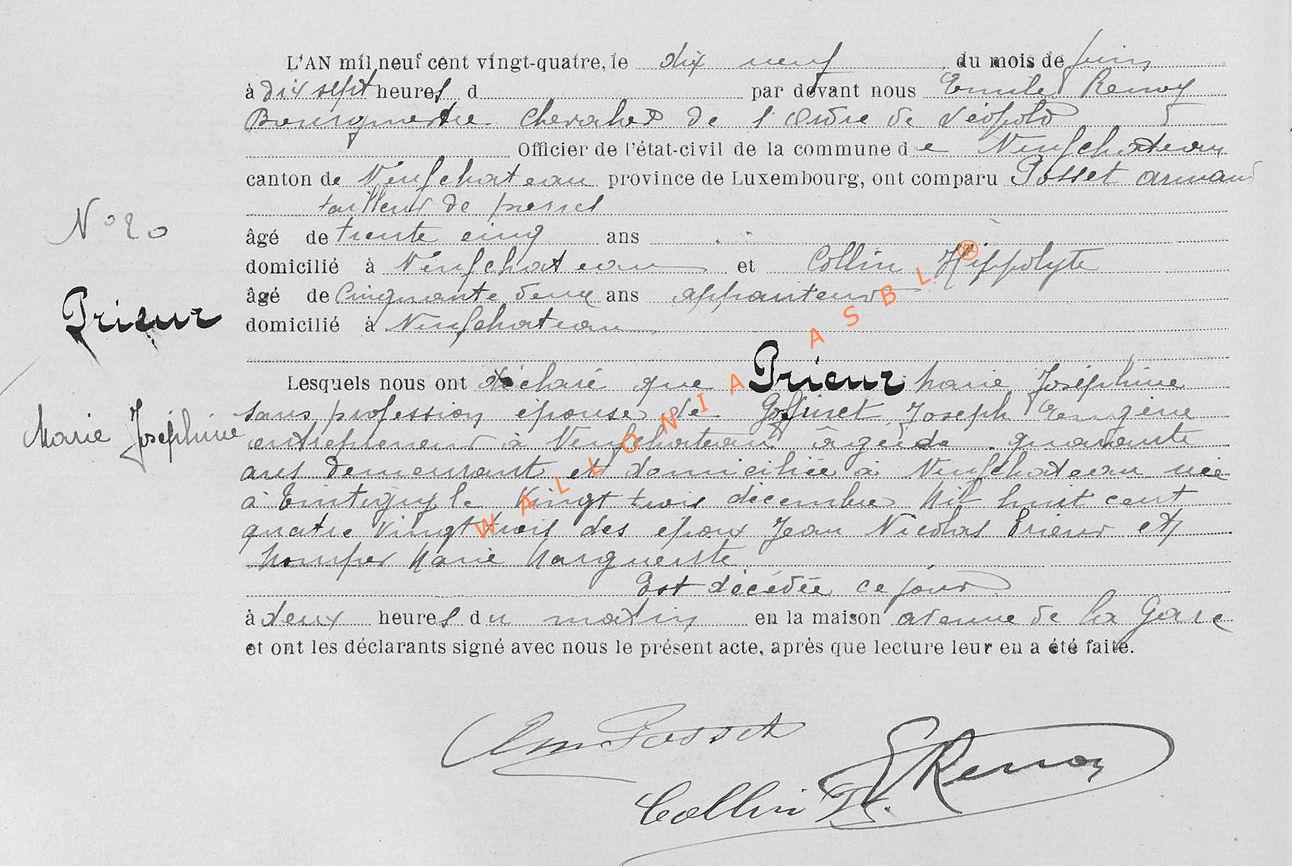 L'AN mil neuf cent vingt-quatre, le dix neuf du mois de juin
à dix sept heures d par devant nous Emile Renoy
Bourgmestre Chevalier de l'Ordre de Léopold
Officier de l'état-civil de la commune de Neufchateau
canton de Neufchateau province de Luxembourg, ont comparu Posset Armand
tailleur de pierres
N° 20
âgé de trente cinq ans
domicilié à Neufchateau et Collin Hippolyte
âgé de Cinquante deux ans appariteur
Prieur
domicilié à Neufchateau
Lesquels nous ont déclaré que Prieur Marie Joséphine
Marie Joséphine
sans profession épouse de Goffinet Joseph Eugène
entrepreneur à Neufchateau âgée de quarante
ans demeurant et domiciliée à Neufchateau née
à Tintigny le Vingt trois décembre Mil huit cent
quatre Vingt trois des époux Jean Nicolas Prieur et
Marie Marguerite
Est décédée ce jour
à deux heures du matin en la maison avenue de la Gare
et ont les déclarants signé avec nous le présent acte, après que lecture leur en a été faite.
WALLONIA ASBL ®
Arm Posset
ERenoy
Collin H.